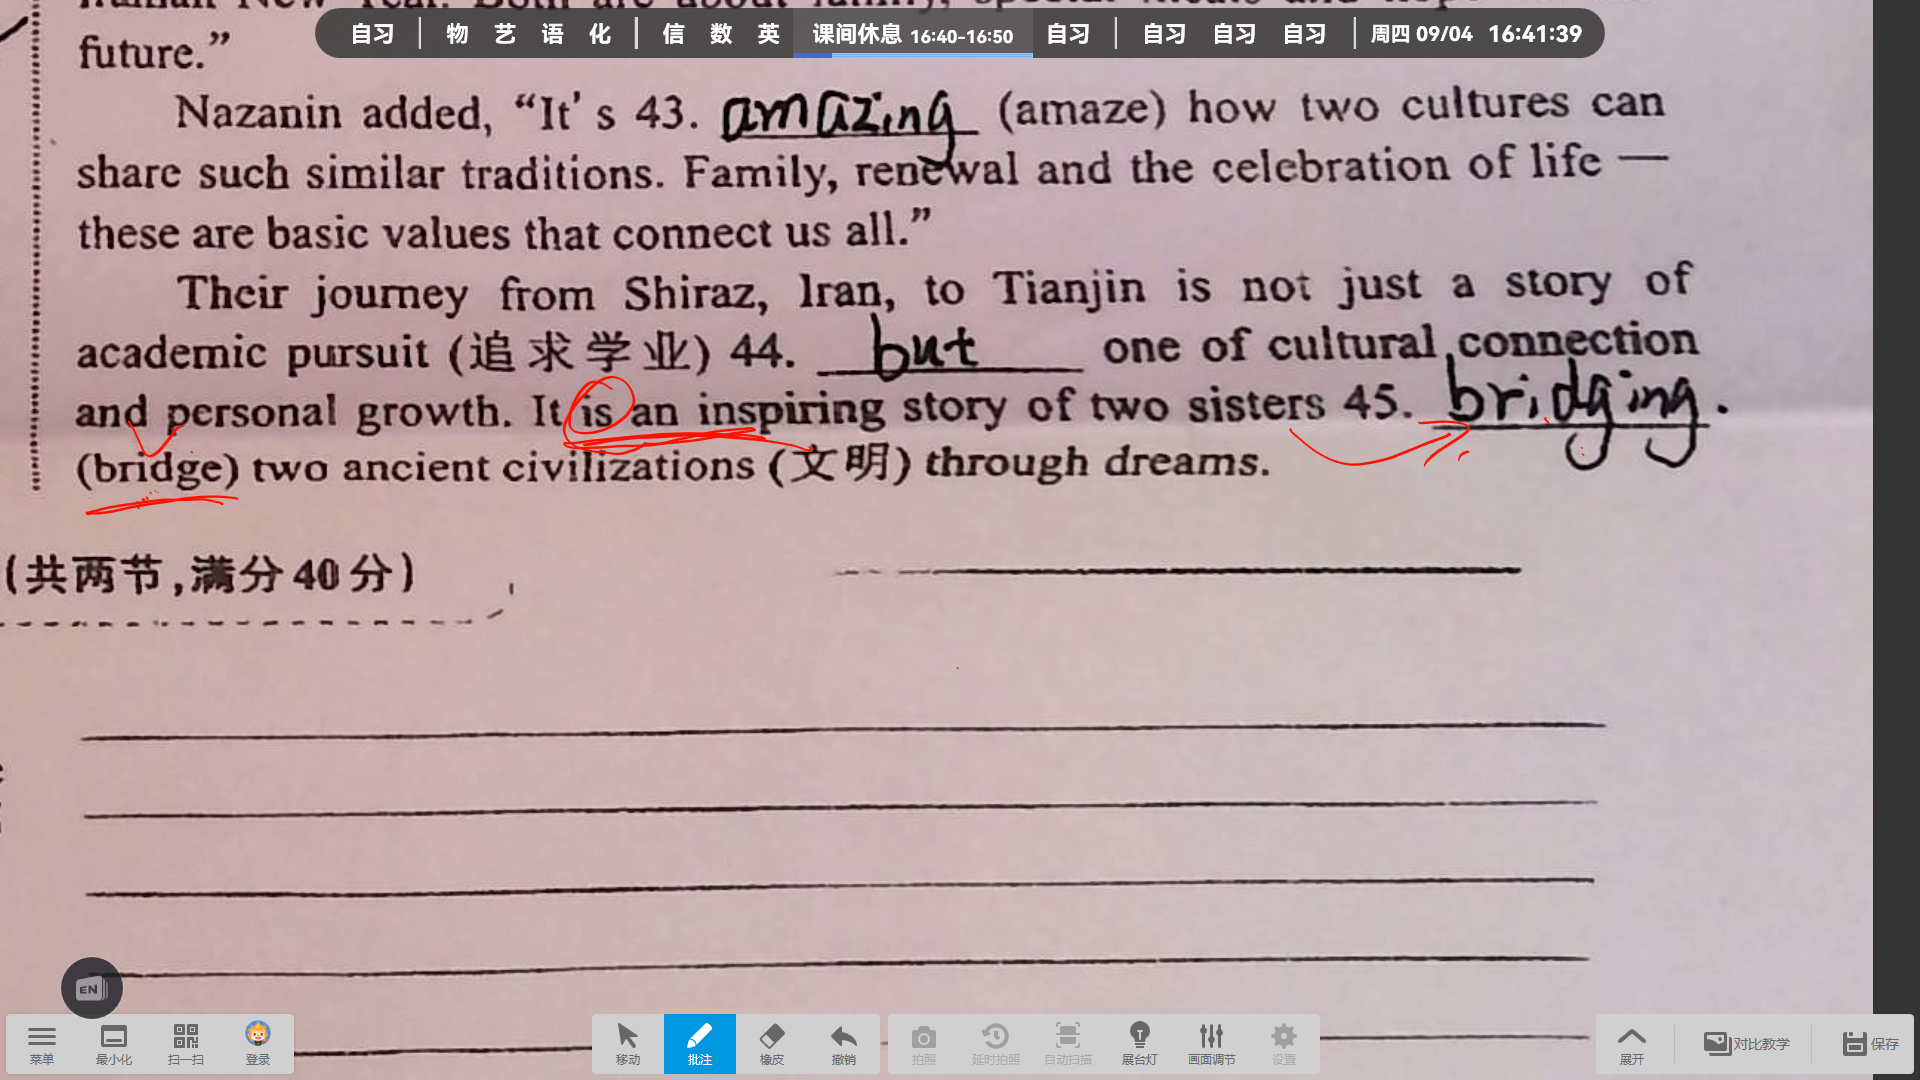 自习 | 物 艺 语 化 | 信 数 英 课间休息 16:40-16:50 自习 | 自习 自习 自习 | 周四 09/04 16:41:39
future.”
Nazanin added, “It's 43. amazing (amaze) how two cultures can
share such similar traditions. Family, renewal and the celebration of life —
these are basic values that connect us all.”
Their journey from Shiraz, Iran, to Tianjin is not just a story of
academic pursuit (追求学业) 44. but one of cultural connection
and personal growth. It is an inspiring story of two sisters 45. bridging.
(bridge) two ancient civilizations (文明) through dreams.
(共两节,满分40分)
EN
菜单 最小化 扫一扫 登录 移动 批注 橡皮 撤销 拍照 延时拍照 自动扫描 展台灯 画面调节 设置 展开 对比教学 保存